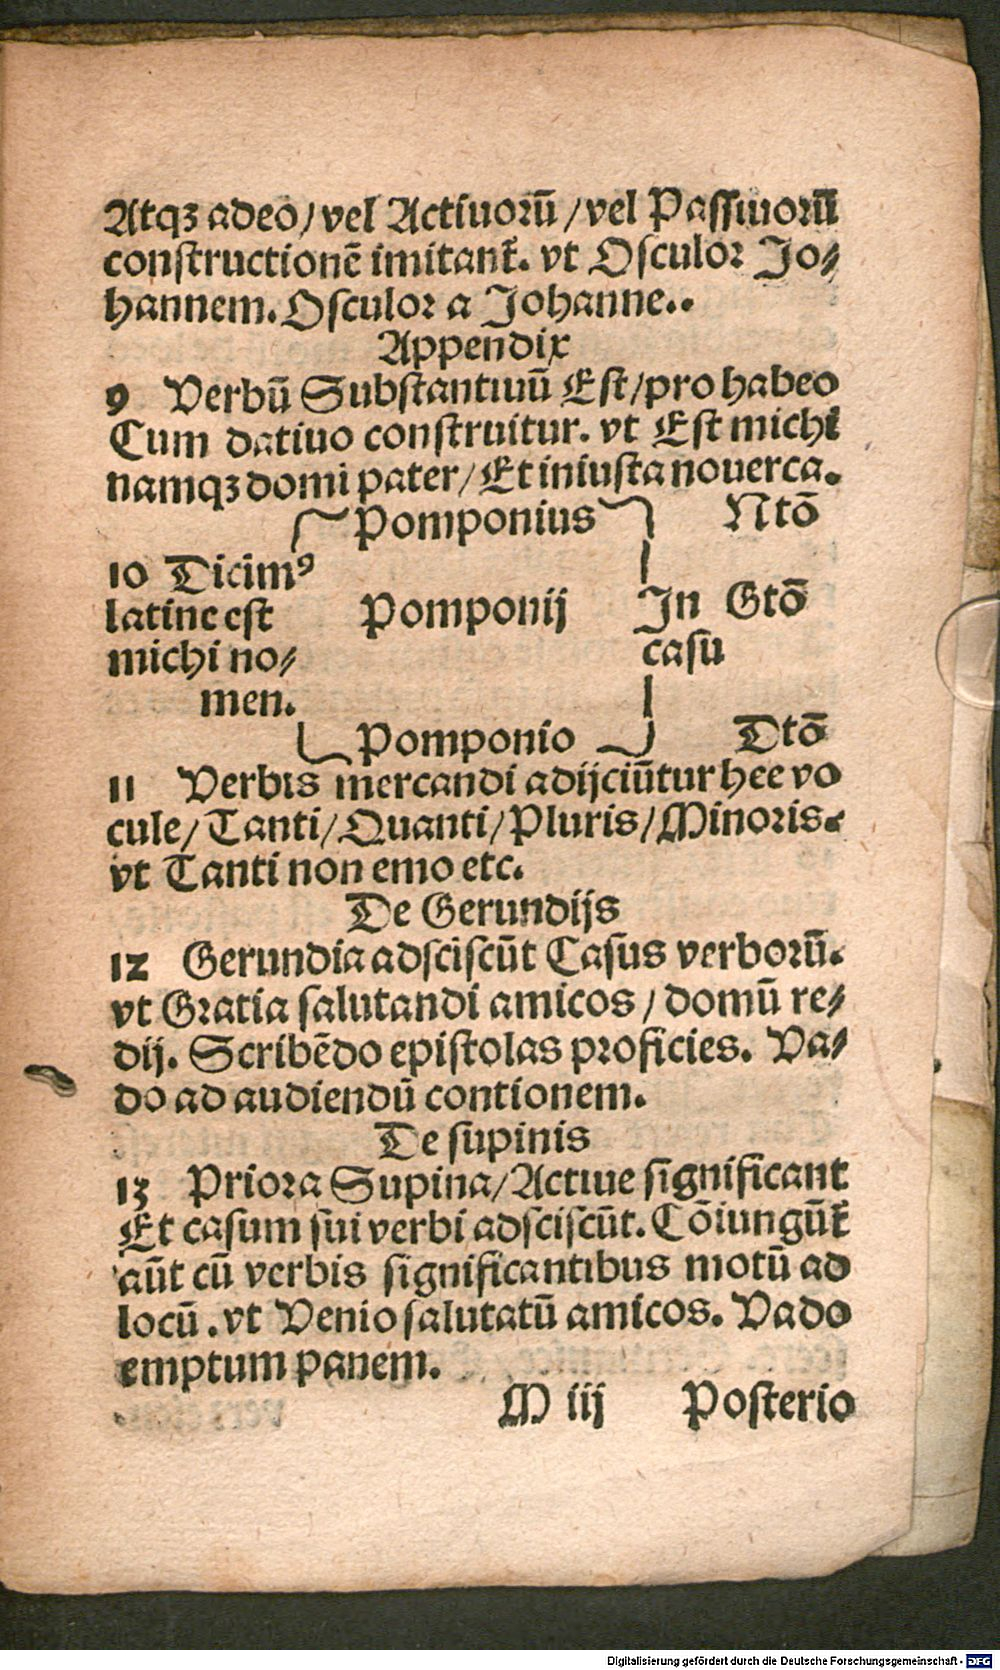 Atqꝫ adeo/ vel Actiuorū /vel Passiuorū
constructionē imitant᷑. vt Osculor Jo⸗
hannem. Osculor a Johanne..
Appendix
9 Verbū Substantiuū Est/pro habeo
Cum datiuo construitur. vt Est michi
namqꝫ domi pater/ Et iniusta nouerca.
Pomponius Ntō
10 Dicimꝰ
latine est Pomponij In Gtō
michi no⸗ casu
men.
Pomponio Dtō
11 Verbis mercandi adijciūtur hee vo
cule/ Tanti/ Quanti/ Pluris/ Minoris.
vt Tanti non emo etc.
De Gerundijs
12 Gerundia adsciscūt Casus verborū.
vt Gratia salutandi amicos / domū re⸗
dij. Scribēdo epistolas proficies. Va⸗
do ad audiendū contionem.
De supinis
13 Priora Supina/ Actiue significant
Et casum sui verbi adsciscūt. Cōiungūt᷑
aūt cū verbis significantibus motū ad
locū .vt Venio salutatū amicos. Vado
emptum panem.
M iij Posterio
Digitalisierung gefördert durch die Deutsche Forschungsgemeinschaft - DFG